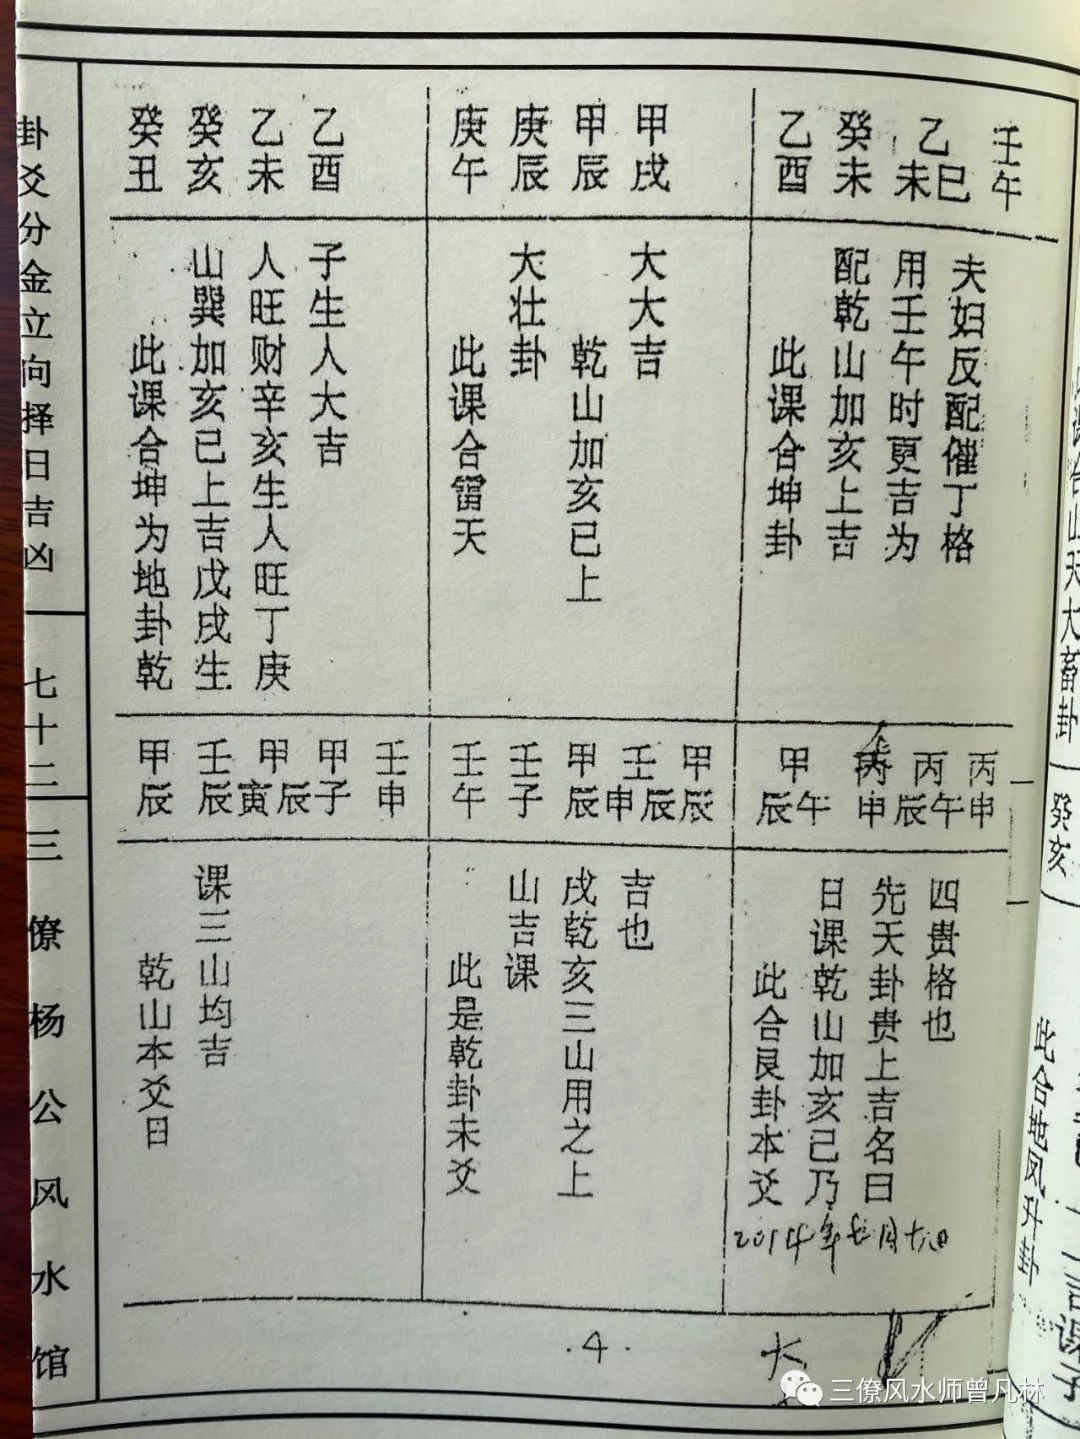 卦爻分金立向择日吉凶
七十二
三僚杨公风水馆
癸丑
癸亥
乙未
乙酉
此课合坤为地卦乾
山巽加亥巳上吉戊戌生
人旺财辛亥生人旺丁庚
子生人大吉
庚午
庚辰
甲辰
甲戌
此课合雷天
大壮卦
乾山加亥巳上
大大吉
乙酉
癸未
乙未巳
壬午
此课合坤卦
配乾山加亥上吉
用壬午时更吉为
夫妇反配催丁格
甲辰
壬辰
甲寅辰
甲子
壬申
乾山本爻日
课三山均吉
壬午
壬子
甲辰
壬申辰
甲辰
此是乾卦未爻
山吉课
戌乾亥三山用之上
吉也
甲辰午
丙申
丙辰午
丙申
此合艮卦本爻
日课乾山加亥己乃
先天卦贵上吉名曰
四贵格也
2014年
·4·
大
合山天大畜卦
癸亥
此合地风升卦
言课子
三僚风水师曾凡林